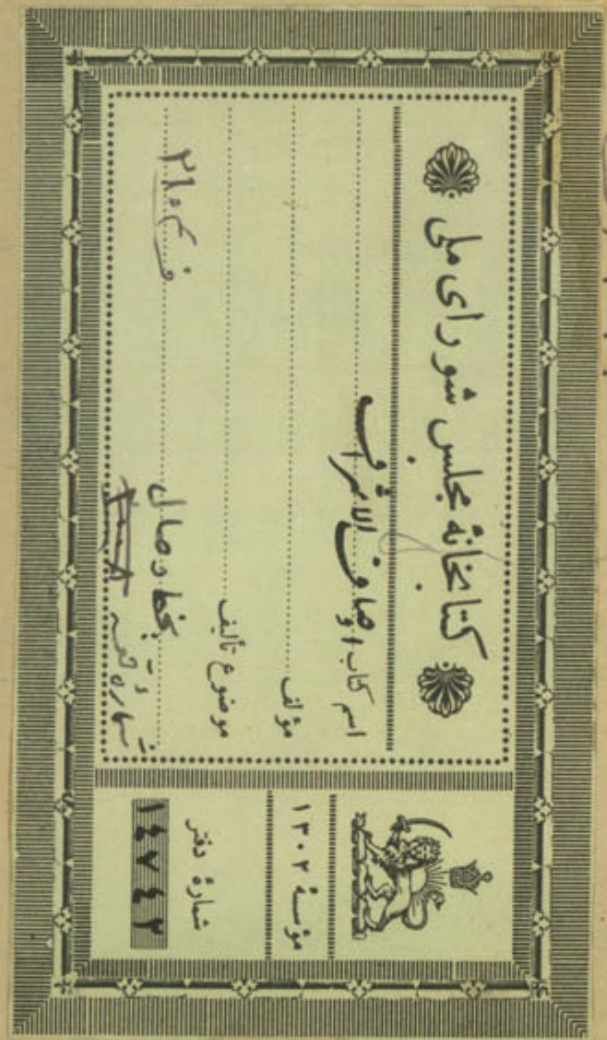 کتابخانهٔ مجلس شورای ملی
اسم کتاب اوصاف الاشراف
مؤلف
موضوع تألیف
بخط وصال
شماره قفسه
۲۸۰
مؤسسهٔ ۱۳۰۲
شمارهٔ دفتر
۱۴۷۴۲